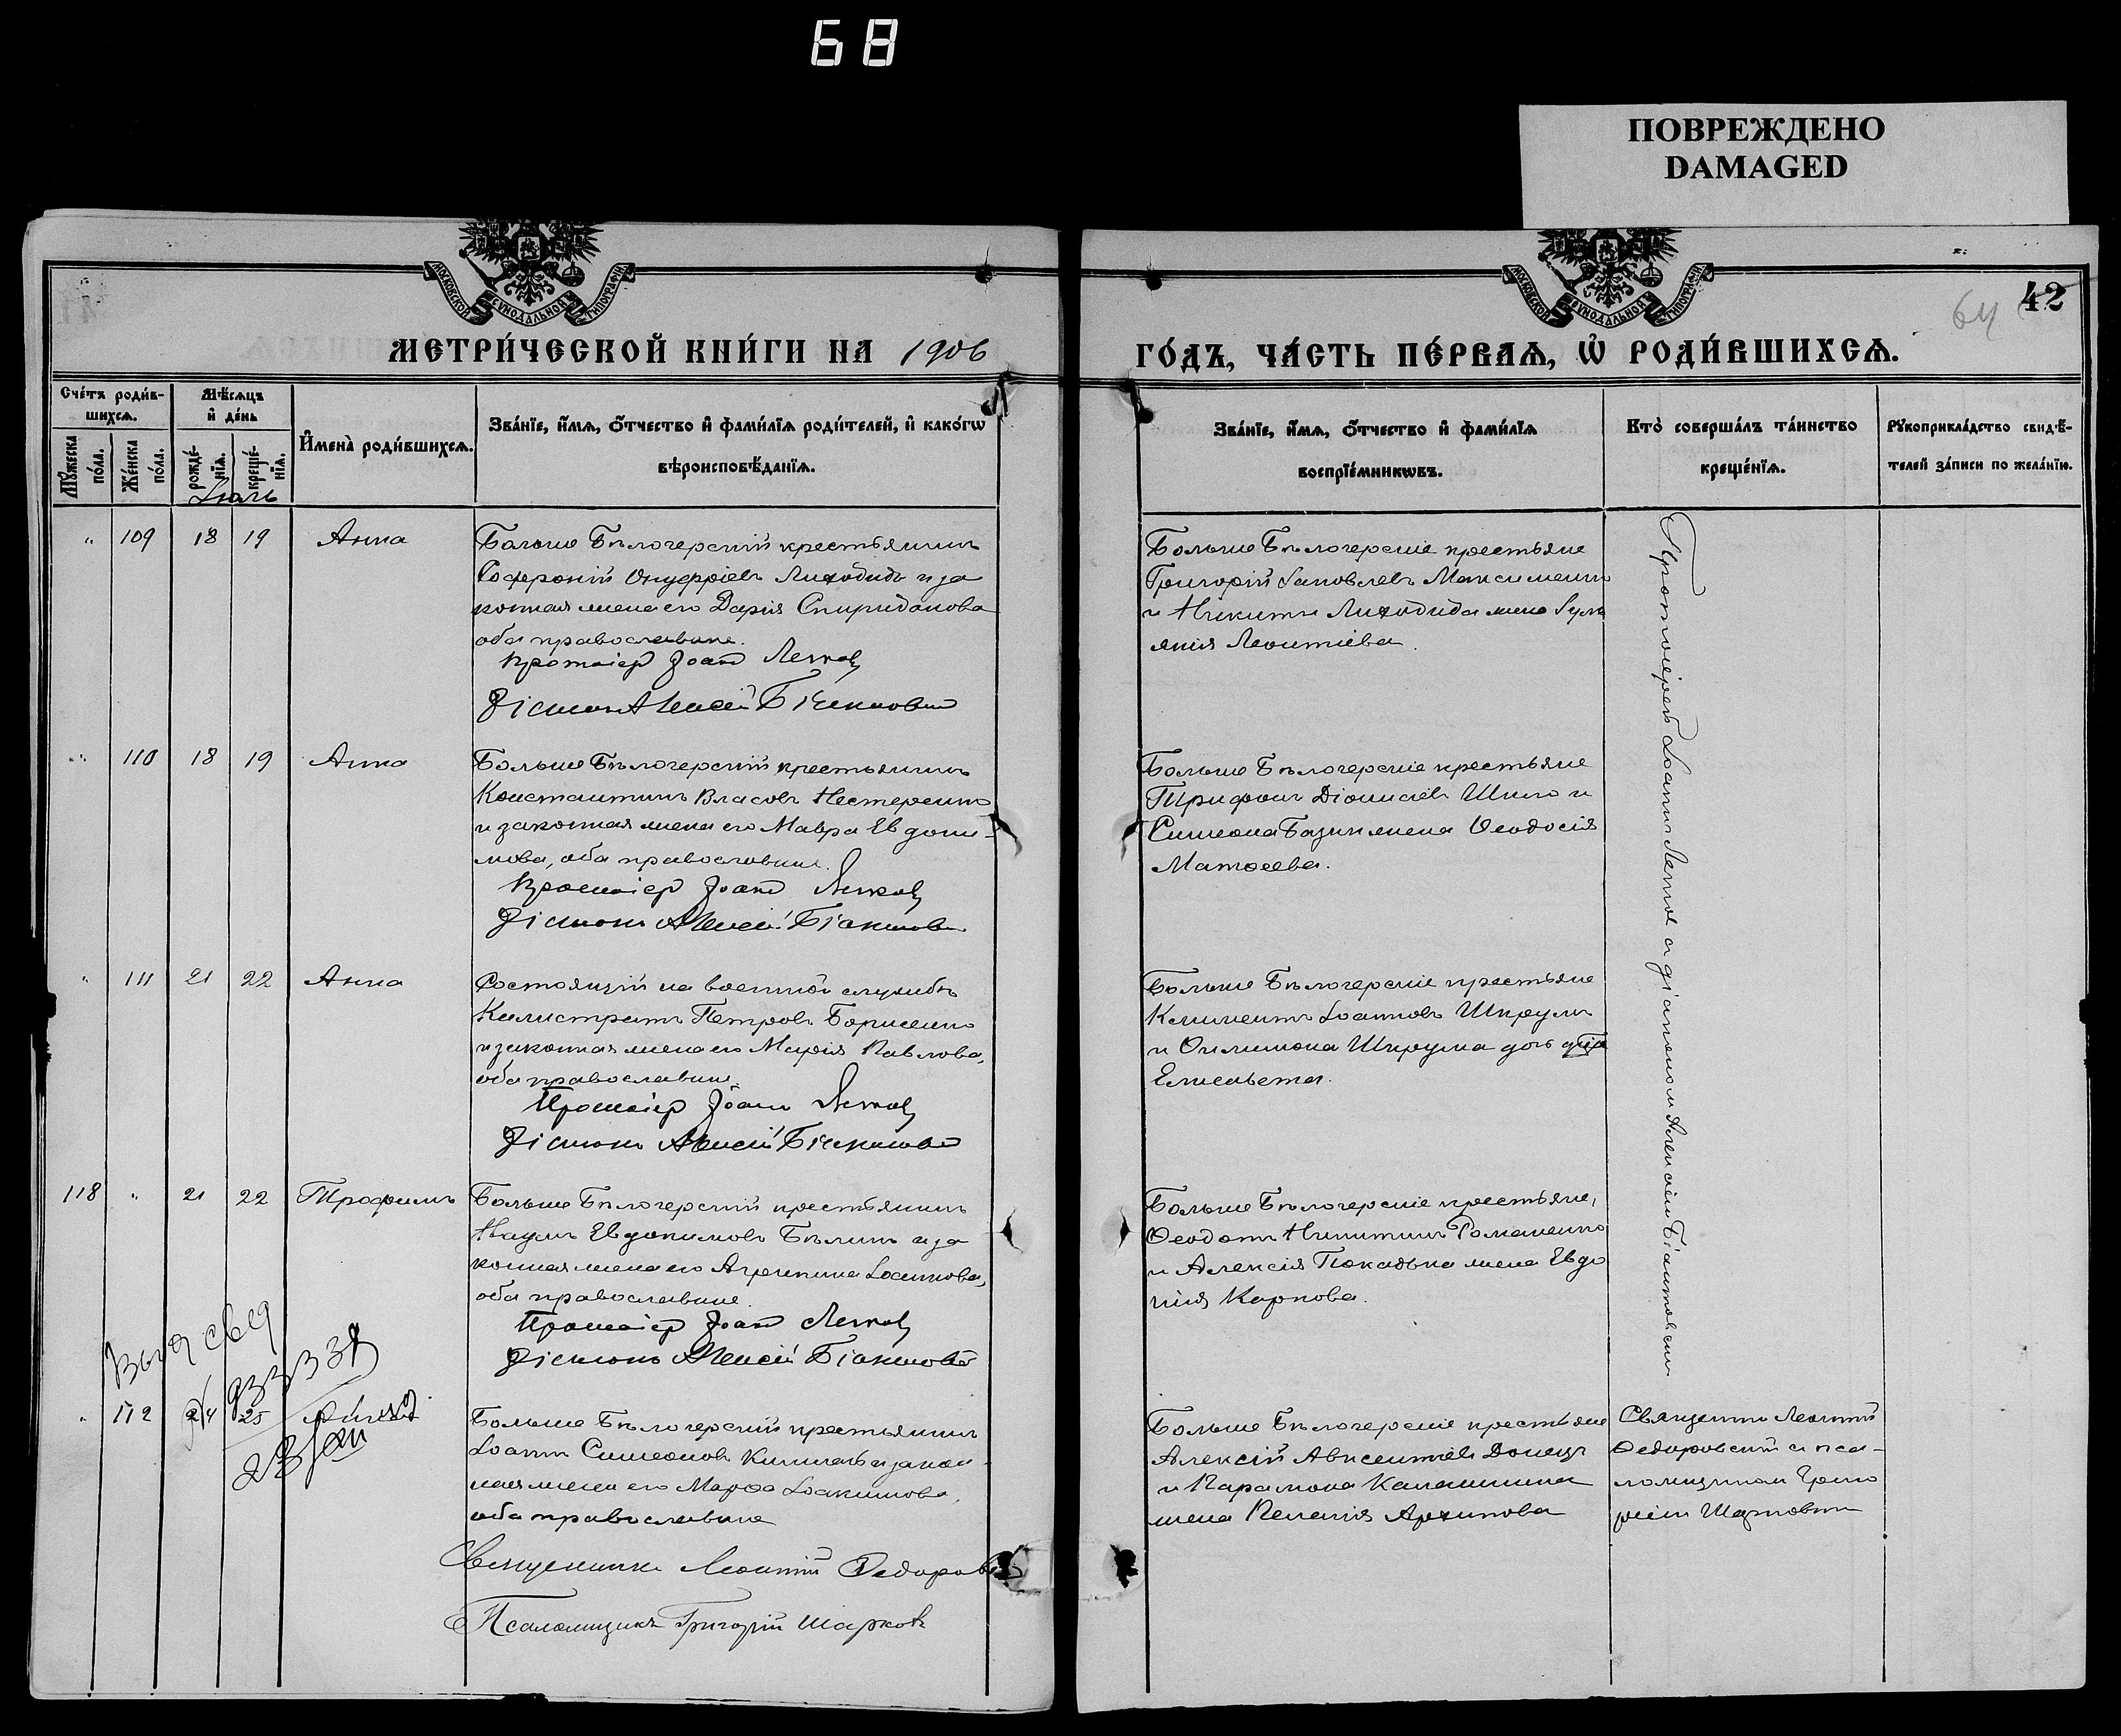 68
ПОВРЕЖДЕНО
DAMAGED
МОСКОВСКОЙ СѴНОДАЛЬНОЙ ТИПОГРАФІИ
МОСКОВСКОЙ СѴНОДАЛЬНОЙ ТИПОГРАФІИ
64 42
МЕТРИ́ЧЕСКОЙ КНИ́ГИ НА 1906
ГО́ДЪ, ЧА́СТЬ ПЕ́РВАѦ, Ѡ҆ РОДИ́ВШИХСѦ.
Сче́тъ роди́в-
шихсѧ.
Мꙋ́жеска по́ла.
Же́нска по́ла.
Мѣ́сѧцъ
и҆ де́нь
рожде́-
нїѧ.
креще́-
нїѧ.
Іюль
И҆мена̀ роди́вшихсѧ.
Зва́нїе, и҆́мѧ, ѻ҆́тчество и҆ фами́лїѧ роди́телей, и҆ како́гѡ
вѣроисповѣ́данїѧ.
Зва́нїе, и҆́мѧ, ѻ҆́тчество и҆ фами́лїѧ
воспрїе́мникѡвъ.
Кто̀ соверша́лъ та́инство
креще́нїѧ.
Рꙋкоприкла́дство свидѣ́-
телей за́писи по жела́нїю.
" 109 18 19 Анна
Больше Бѣлозерскій крестьянинъ
Софроній Онуфріевъ Лиходидъ и за
конная жена его Дарія Спиридонова
оба православные.
Протоіер Іоан
Діаконъ Алексій
Больше Бѣлозерскіе крестьяне
Григорій Іаковлевъ Максименко
и Никиты Лиходида жена Іулі
анія Леонтіева.
Протоіерей Іоаннъ и діакономъ Алексіемъ
" 110 18 19 Анна
Больше Бѣлозерскій крестьянинъ
Константинъ Власовъ Нестеренко
и законная жена его Мавра Евдоки-
мова, оба православные.
Протоіер Іоан
Діаконъ Алексій
Больше Бѣлозерскіе крестьяне
Трифонъ Діонисіевъ Шило и
Симеона жена Ѳеодосія
Матѳеева.
" 111 21 22 Анна
Состоящій на военной службѣ
Калистратъ Петровъ Борисенко
и законная жена его Марія Павлова,
оба православные.
Протоіер Іоан
Діаконъ Алексій
Больше Бѣлозерскіе крестьяне
Климентъ Іоанновъ Шкрумъ
и Филимона Шкрума дочь дѣвица
Елисавета.
118 " 21 22 Трофимъ
Больше Бѣлозерскій крестьянинъ
Наумъ Евдокимовъ Бѣликъ и за
конная жена его Агрипина Іоаннова,
оба православные.
Протоіер Іоан
Діаконъ Алексій
Больше Бѣлозерскіе крестьяне,
Ѳеодотъ Никитинъ Романенко
и Алексія жена Евдо
кія Карпова.
" 112 24 25
Больше Бѣлозерскій крестьянинъ
Іоаннъ Симеоновъ и закон-
ная жена его Марѳа Іоакимова,
оба православные
Священникъ Леонтій Ѳедоровскій
Псаломщикъ Григорій Шарковъ
Больше Бѣлозерскіе крестьяне
Алексій Авксентіевъ Донецъ
и Парамона Калашника
жена Пелагія Архипова
Священникъ Леонтій
Ѳедоровскій и пса-
ломщикъ Григо
рій